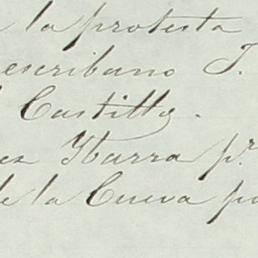 la protesta
escribano J.
Castillo.
Ybarra pr
de la Cueva p